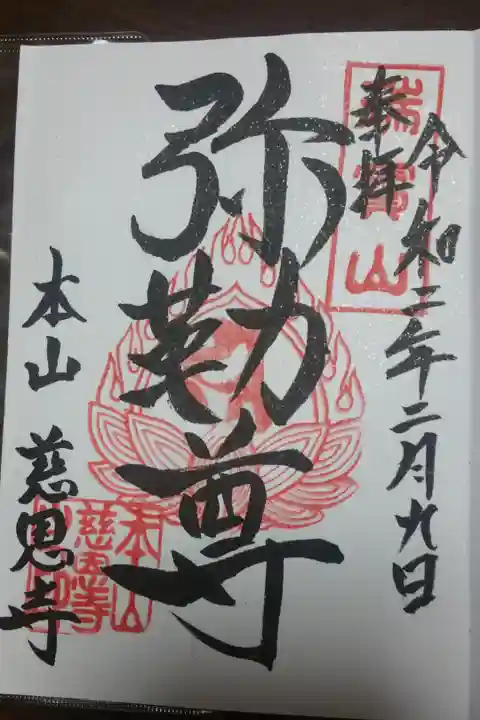 令和二年二月九日
奉拝
瑞宝山
弥勒尊
本山 慈恩寺
本山
慈恩寺